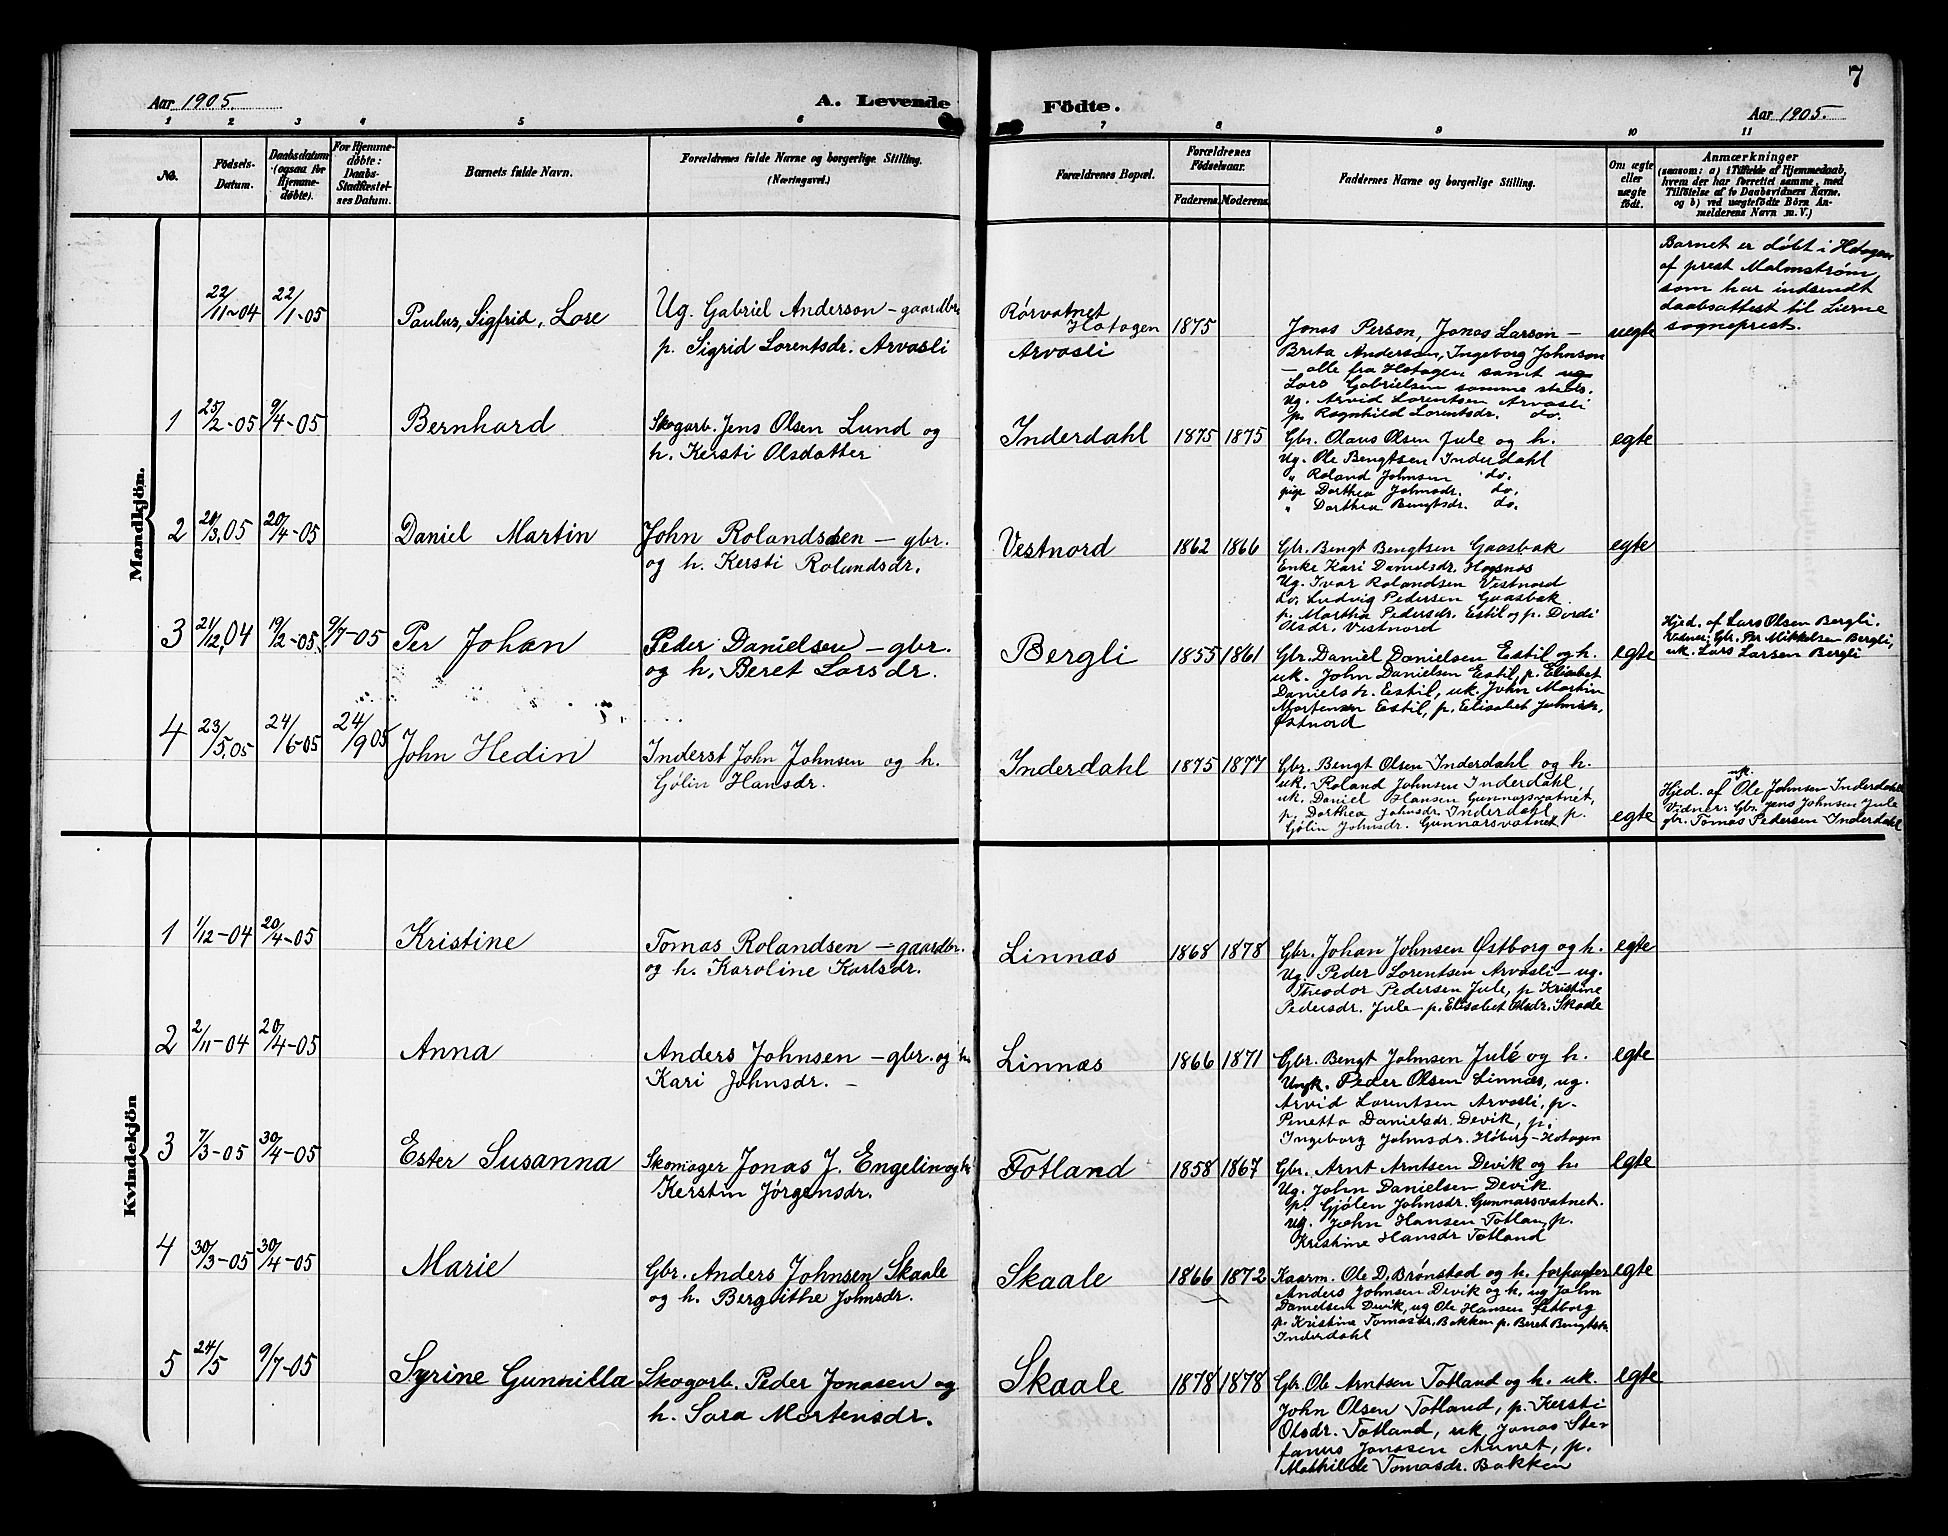 7
Aar 1905.
A. Levende Födte.
Aar 1905.
1 2 3 4 5 6 7 8 9 10 11
No.
Födsels-
Datum.
Daabsdatum
(ogsaa for
Hjemme-
døbte).
For Hjemme-
døbte:
Daabs-
Stadfæstel-
ses Datum.
Barnets fulde Navn.
Forældrenes fulde Navne og borgerlige Stilling.
(Næringsvei.)
Forældrenes Bopæl.
Forældrenes
Födselsaar.
Faderens. Moderens.
Faddernes Navne og borgerlige Stilling.
Om ægte
eller
uægte
födt.
Anmærkninger
(saasom: a) i Tilfælde af Hjemmedaab,
hvem der har forrettet samme, med
Tilföielse af to Daabsvidners Navne,
og b) ved uægtefödte Börn An-
melderens Navn m. V.)
Mandkjön.
22/11-04 22/1-05
Paulus, Sigfrid, Lore
Ug. Gabriel Anderson - gaardbr.
p. Sigrid Lorentsdr. Arvasli
Rörvatnet
Hotagen
Arvasli
1875
Jonas Person, Jonas Larson -
Brita Anderson, Ingeborg Johnson
- alle fra Hotagen samt ug
Lars Gabrielsen samme steds.
Ug. Arvid Lorentsen Arvasli
p. Ragnhild Lorentsdr. do.
uegte
Barnet er døbt i Hotagen
af prest Malmstrøm,
som har indsendt
daabsattest til Lierne
sogneprest.
1 25/2-05 9/4-05
Bernhard
Skogarb. Jens Olsen Lund og
h. Kersti Olsdatter
Inderdahl
1875 1875
Gbr. Olaus Olsen Jule og h.
Ug. Ole Bengtsen Inderdahl
" Roland Johnsen do.
pige Dorthea Johnsdr. do.
" Dorthea Bengtsdr. do.
egte
2 20/3.05 20/4-05
Daniel Martin
John Rolandsen - gbr.
og h. Kersti Rolandsdr.
Vestnord
1862 1866
Gbr. Bengt Bengtsen Gaasbak
Enke Kari Danielsdr. Hogsnes
Ug. Ivar Rolandsen Vestnord
do. Ludvig Pedersen Gaasbak
p. Martha Pedersdr. Estil og p. Dordi
Olsdr. Vestnord
egte
3 21/12.04 19/2-05. 9/7-05
Per Johan
Peder Danielsen - gbr.
og h. Beret Larsdr.
Bergli
1855 1861
Gbr. Daniel Danielsen Estil og h.
uk. John Danielsen Estil, p. Elisabet
Daniels h. Estil, uk. John Martin
Mortensen Estil, p. Elisabet Johnsdr,
Østnord
egte
Hjed. af Lars Olsen Bergli.
Vidner: Gbr. Per Mikkelsen Bergli,
uk. Lars Larsen Bergli
4 23/5.05 24/6-05 24/9 05
John Hedin
Inderst John Johnsen og h.
Gjølin Hansdr.
Inderdahl
1875 1877
Gbr. Bengt Olsen Inderdahl og h.
uk. Roland Johnsen Inderdahl,
uk. Daniel Hansen Gunnarsvatnet,
p. Dorthea Johnsdr. Inderdahl, p.
Gjølin Johnsdr. Gunnarsvatnet
egte
uk.
Hjed. af Ole Johnsen Inderdahl
Vidner: Gbr. Jens Johnsen Jule
gbr. Tomas Pedersen Inderdahl
Kvindekjön
1 1/12-04 20/4-05
Kristine
Tomas Rolandsen - gaardbr.
og h. Karoline Karlsdr.
Linnæs
1868 1878
Gbr. Johan Johnsen Østborg og h.
Ug. Peder Lorentsen Arvasli - ug.
Theodor Pedersen Jule, p Kristine
Pedersdr. Jule - p. Elisabet Olsdr. Skaale
egte
2 2/11-04 20/4-05
Anna
Anders Johnsen - gbr. og h.
Kari Johnsdr. -
Linnæs
1866 1871
Gbr. Bengt Johnsen Jule og h.
Ungk. Peder Olsen Linnæs, ug.
Arvid Lorentsen Arvasli, p.
Penetta Danielsdr. Devik, p.
Ingeborg Johnsdr. Høberg-Hotagen
egte
3 7/3-05 30/4-05
Ester Susanna
Skomager Jonas J. Engelin og h
Kerstin Jørgensdr.
Totland
1858 1867
Gbr. Arnt Arntsen Devik og h.
Ug. John Danielsen Devik.
p. Gjølen Johnsdr. Gunnarsvatnet.
Ug. John Hansen Totlan, p.
Kristine Hansdr Totland
egte
4 30/3-05 30/4-05
Marie
Gbr. Anders Johnsen Skaale
og h. Bergvithe Johnsdr.
Skaale
1866 1872
Kaarm. Ole D. Brønstad og h. forpagter
Anders Johnsen Devik og h. ug John
Danielsen Devik, ug Ole Hansen Østborg
p. Kristina Tomasdr. Bakken p. Beret Bengtsdr.
Inderdahl
egte
5 24/5 9/7-05
Syrine Gunnilla
Skogarb. Peder Jonasen og
h. Sara Mortensdr.
Skaale
1878 1878
Gbr. Ole Arntsen Totland og h. uk.
John Olsen Totland, p. Kersti
Olsdr. Totland, uk. Jonas Ste-
fanus Jonasen Aunet, p.
Mathilde Tomasdr. Bakken
egte